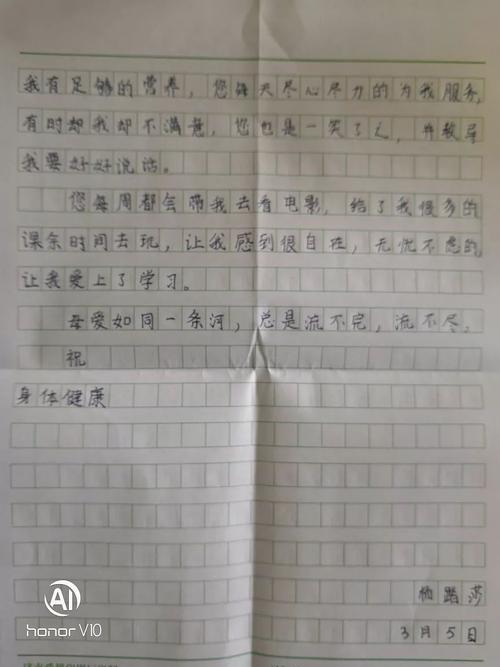 我有足够的营养，您每天尽心尽力的为我服务，
有时却我却不满意，您也是一笑了之，并教导
我要好好说话。
您每周都会带我去看电影，给了我很多的
课余时间去玩，让我感到很自在，无忧不虑的
让我爱上了学习。
母爱如同一条河，总是流不完，流不尽。
祝
身体健康
莎
3月5日
AI
honor V10